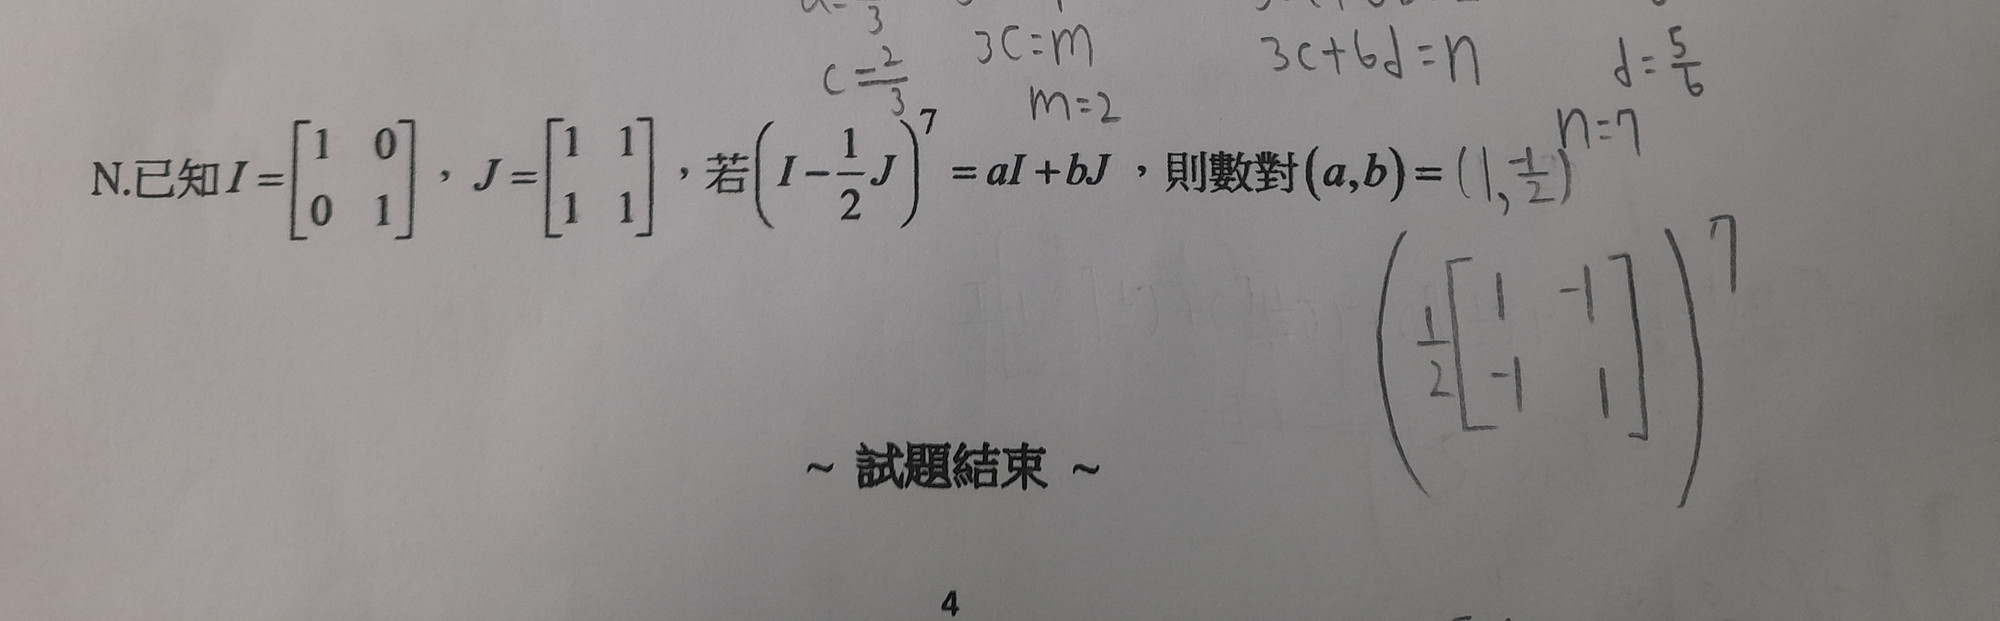 3
c=-2/3 3c=m 3c+6d=n d=5/6
m=2
n=7
N.已知I=[1 0 0 1],J=[1 1 1 1],若(I-1/2J)^7=aI+bJ,則數對(a,b)=(1,-1/2)
(1/2[1 -1 -1 1])^7
~ 試題結束 ~
4